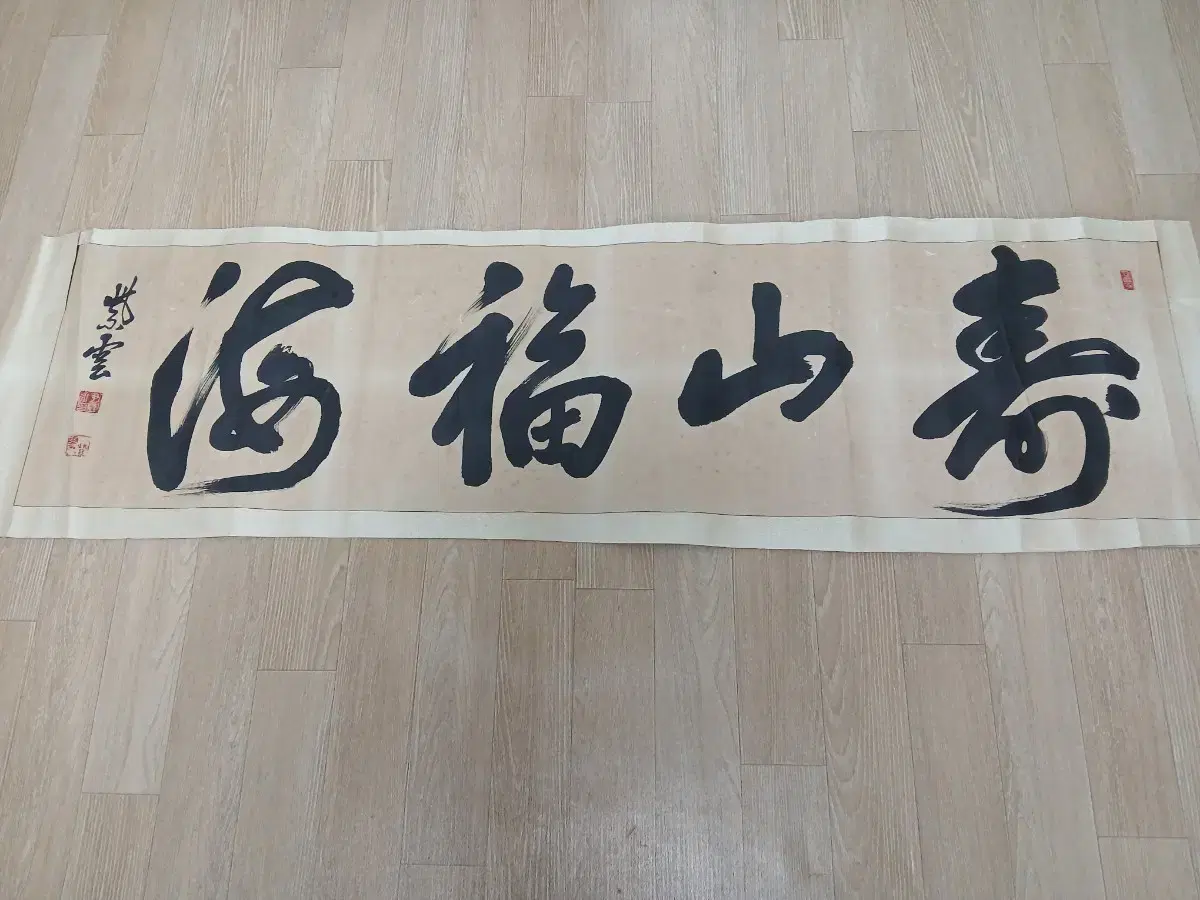 寿山福海
紫雲